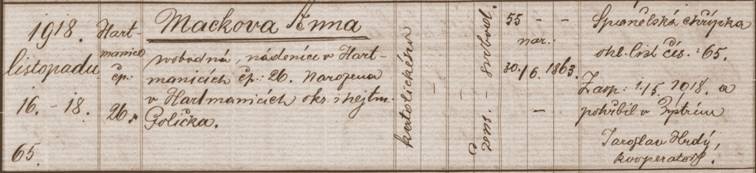 1918.
listopadu
16. - 18.
65.
Hart-
manice
čp.
26.
Macková Anna
svobodná, nádenice v Hart-
manicích čp: 26. Narozena
v Hartmanicích okr. i hejtm.
Polička.
katolického
žen. - svobod.
55 - -
nar.
30./6. 1863.
-
Španělská chřipka
ohl. list čís.: 65.
Zaop: 1/5. 1918. a
pohřbil v Bystrém
Jaroslav Hrdý,
kooperator.